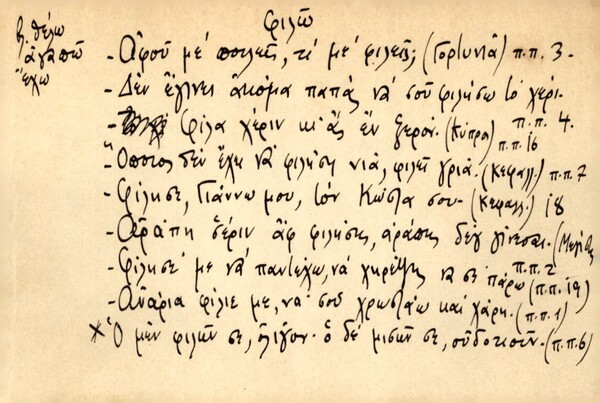 φιλῶ
β. θέλω
ἀγαπῶ
ἔχω
- Ἀφοῦ με' πουλεῖς, τί με' φιλεῖς; (Γορτυνία) π.π. 3.
- Δὲν ἔγινει ἀκόμα παπᾶς νά σοῦ φιλήσω τό χέρι.
- Φίλα χέριν κι' ἄς ἐν ξερόν. (Κύπρος) π.π. 4.
π.π. 16
- Ὅποιος δὲν ἔχει νὰ φιλήσῃ νιά, φιλεῖ γριά. (Κεφαλλ.) π.π. 7
- Φίλησε, Γιάννω μου, τόν Κώστα σου. (Κεφαλλ.) 18
- Ἀράπη σέριν ἄφ φιλήσῃς, ἀράπης δέγ γίνεσαι.
π.π. 2
- Φίλησέ με νὰ παντέχω, νά χηρέψῃς νὰ σέ πάρω (π.π. 19)
- Ἀνάρια φίλιε με, νά σοῦ χρωστάω καί χάρη. (π.π. 1)
× Ὁ μέν φιλῶν σε, ὀλίγον· ὁ δέ μισῶν σε, οὐδοτιοῦν. (π.π. 6)